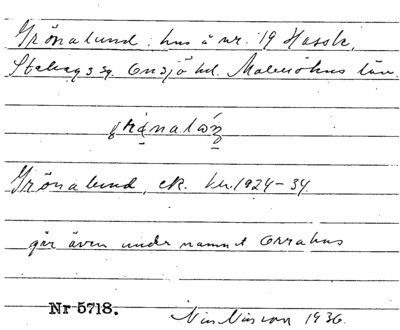 Grönalund: hus å nr. 19 Hassle,
Stehags sn. Onsjö hd. Malmöhus län.
Grönalund, ek. kr. 1924-34
går även under namnet Orrahus
Nr 5718.
Nils Nilsson 1936.